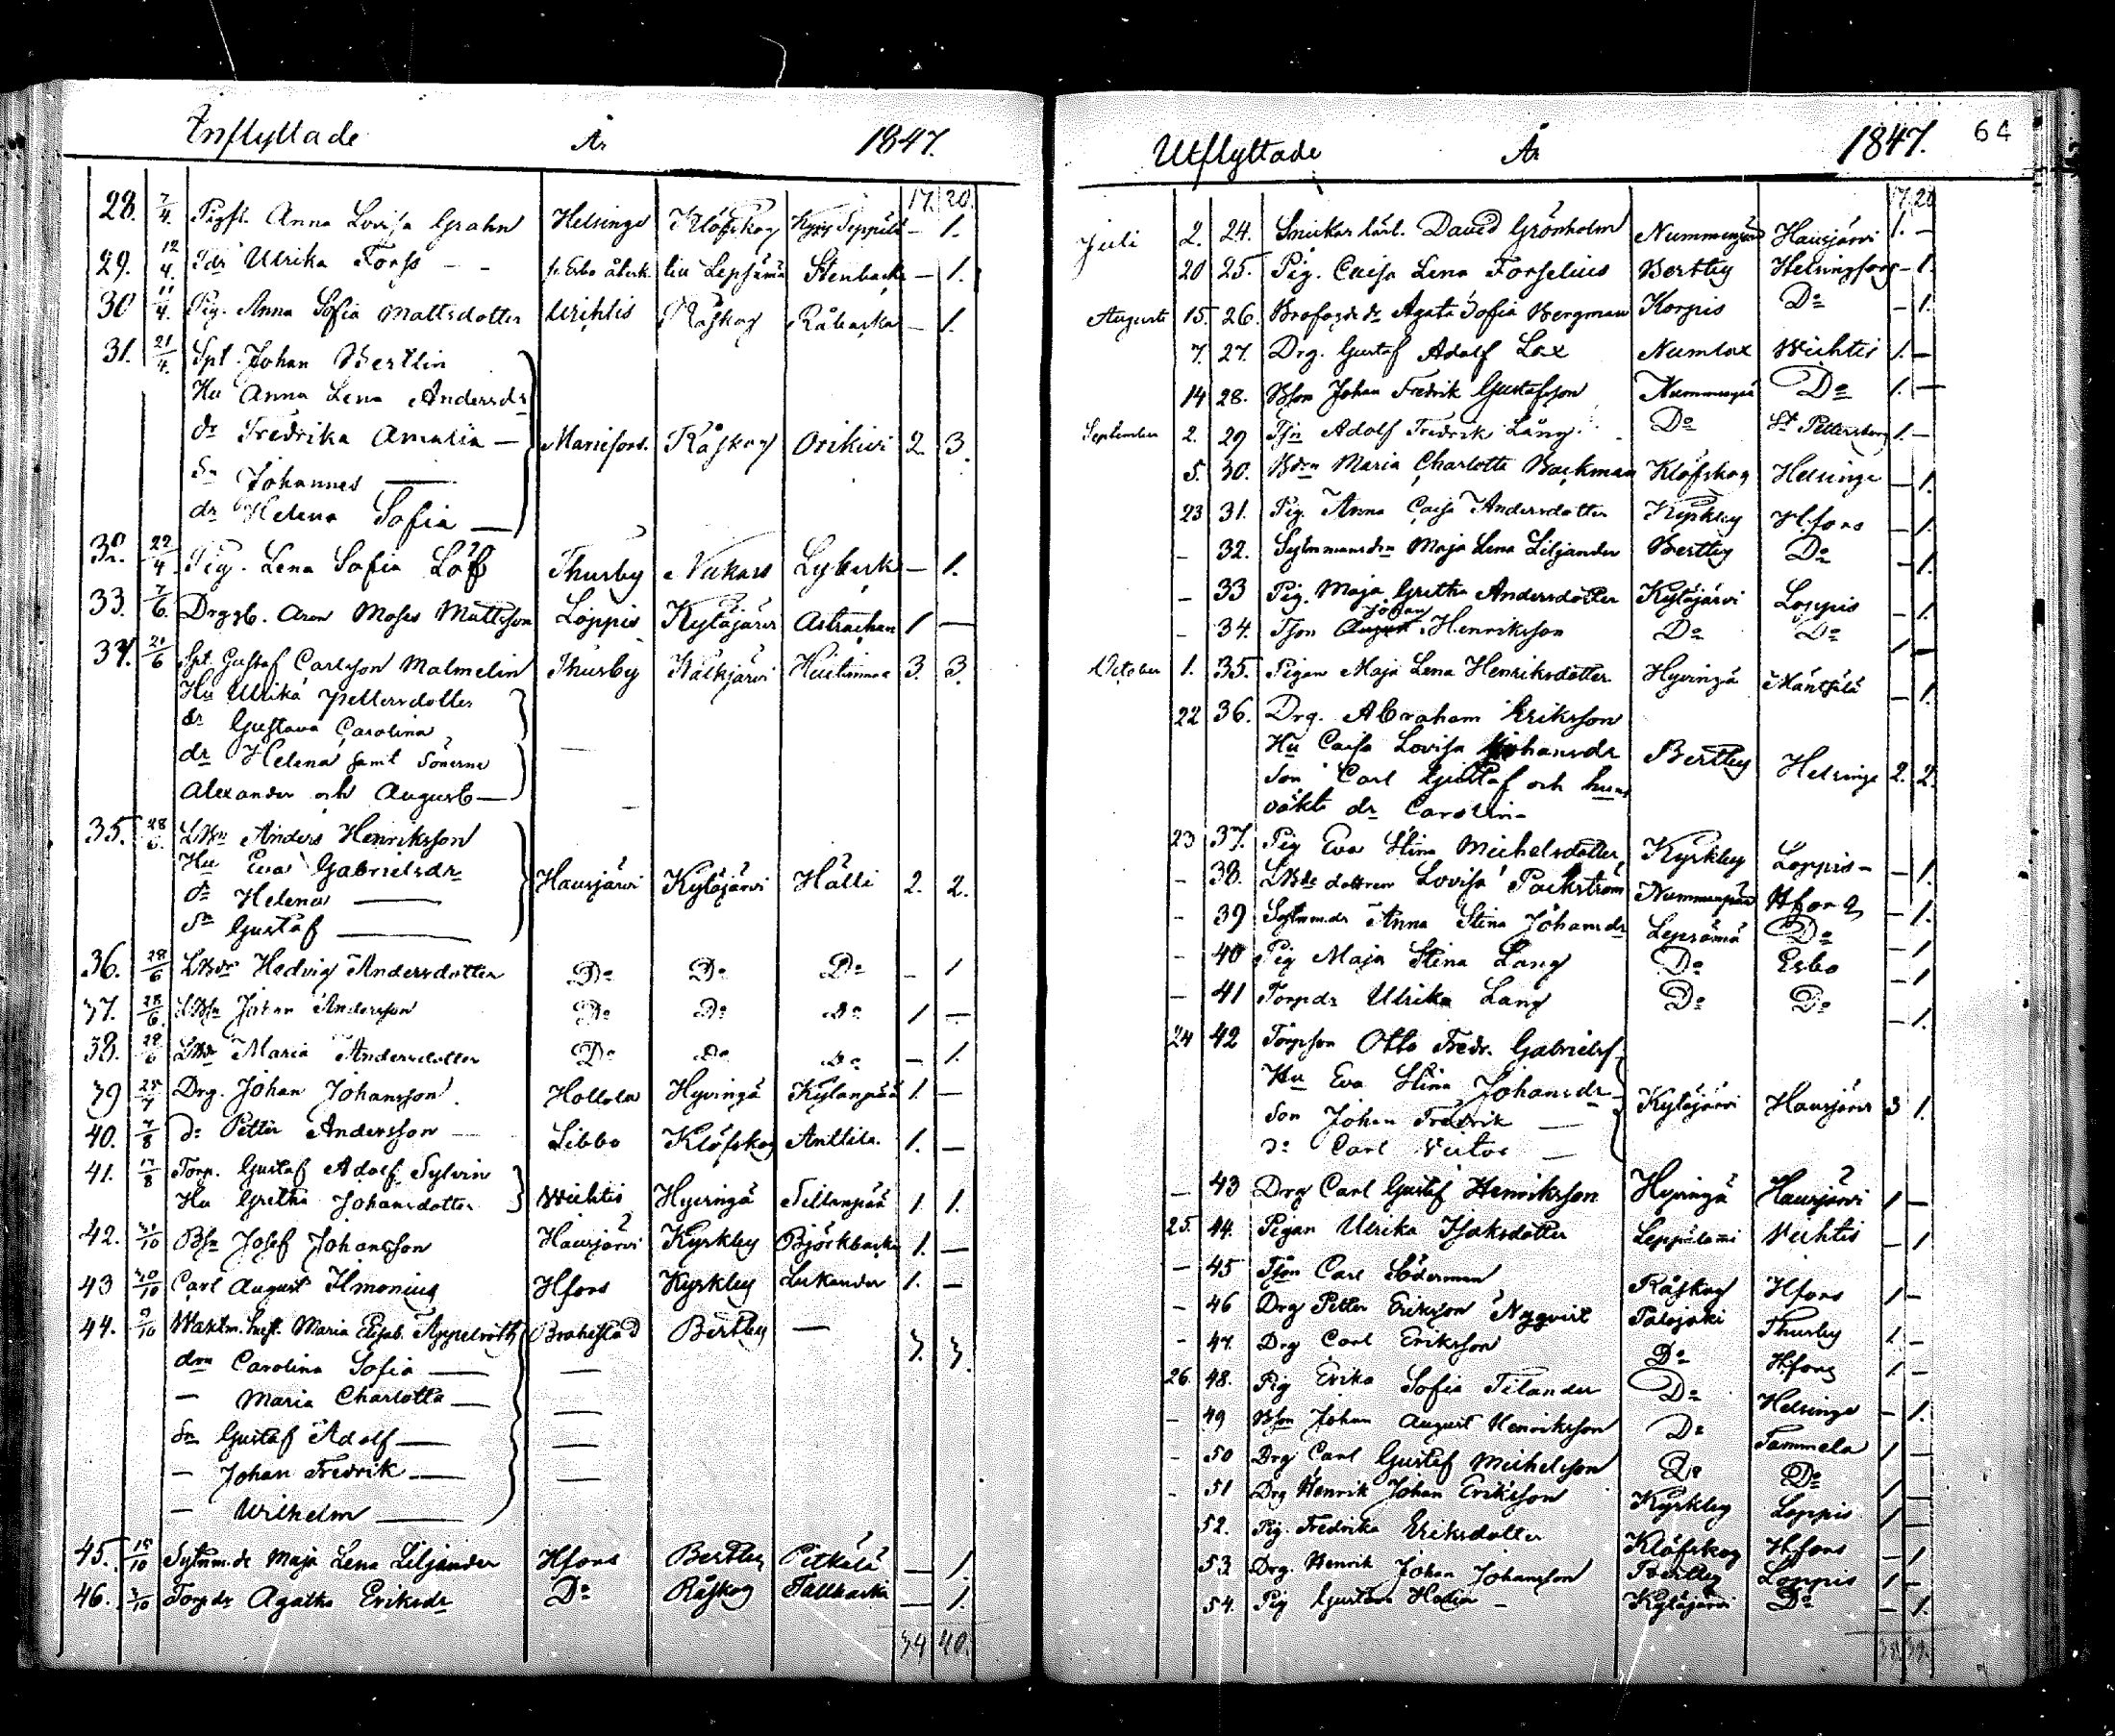 Inflyttade År 1847.
17. 20.
28. 7/4. Pigfl. Anna Lovisa Grahn Helsinge Klöfskog Seppälä — 1.
29. 12/4. Tdr Ulrika Forss fr. Esbo återk. Lepsämä Stenbacka — 1.
30 11/4. Pig. Anna Sofia Mattsdotter Wichtis Råskog Råbacka — 1.
31. 21/4. Spt. Johan Bertlin
Hu Anna Lena Andersdr
dr Fredrika Amalia — Mariefors. Råskog Orikivi 2. 3.
Sn Johannes —
dr Helena Sofia —
32. 22/4 Pig. Lena Sofia Löf Thusby Nukars Lybeck — 1.
33. 7/6. Drgg. Aron Moses Mattsson Loppis Kytäjärvi Astrachan 1 —
34. 21/6 Spt. Gustaf Carlsson Malmelin Thusby Kalkjärvi 3. 3.
Hu Ulrika Pettersdotter
dr Gustava Carolina
dr Helena samt Sönerne —
Alexander och August — —
35. 28/6. LBn Anders Henriksson
Hu Eva Gabrielsdr
dr Helena — Hausjärvi Kytäjärvi Hälli 2. 2.
Sn Gustaf —
36. 28/6 LBdr Hedvig Andersdotter Do Do Do — 1
37. 28/6. LBsn Johan Andersson Do Do Do 1 —
38. 28/6 LBdr Maria Andersdotter Do Do Do — 1.
39 25/7 Drg. Johan Johansson Hollola Hyvingä Kylänpää 1. —
40. 7/8 do Petter Andersson Sibbo Klöfskog Anttila. 1. —
41. 17/8 Torp. Gustaf Adolf Sylvin
Hu Gretha Johansdotter Wichtis Hyvingä Sillanpää 1. 1.
42. 31/10 Bsn Josef Johansson Hausjärvi Kyrkby Björkbacka 1. —
43 30/10 Carl August Ilmonius Hfors Kyrkby Lukander 1. —
44. 9/10 Waktm. hust. Maria Elisab. Appelroth Brahestad Bertby —
3. 3.
drn Carolina Sofia — —
— Maria Charlotta — —
Sn Gustaf Adolf — —
— Johan Fredrik — —
— Wilhelm —
45. 15/10 Sytnm.dr Maja Lena Liljander Hfors Bertby Pitkälä — 1.
46. 3/10 Torpdr Agatha Eriksdr Do Råskog Tallbacka — 1.
34 40.
Utflyttade År 1847. 64
17 20
Juli 2. 24. Snickar lärl. David Grönholm Nummenpää Hausjärvi 1. —
20 25. Pig. Caisa Lena Forselius Bertby Helsingfors — 1.
Augusti 15. 26. Agata Sofia Bergman Korpis Do — 1.
7. 27. Drg. Gustaf Adolf Lax Numlax Wichtis 1. —
14 28. Bson Johan Fredrik Gustafsson Nummenpää Do 1. —
September 2. 29 Tsn Adolf Fredrik Lång Do St Pettersborg 1. —
5. 30. Bdrn Maria Charlotta Backman Klöfskog Helsinge — 1.
23 31. Pig. Anna Caisa Andersdotter Kyrkby Hfors — 1.
— 32. Sytnmansdrn Maja Lena Liljander Bertby Do — 1.
— 33 Pig. Maja Gretha Andersdotter Kytäjärvi Loppis — 1.
Johan
— 34. Tson August Henriksson Do Do 1 —
October 1. 35. Pigan Maja Lena Henriksdotter Hyvingä Mäntsälä — 1.
22 36. Drg. Abraham Eriksson
Hu Caisa Lovisa Johansdr Bertby Helsinge 2. 2.
Son Carl Gustaf och hus
oäkt dr Carolin
23 37. Pig Eva Stina Michelsdotter Kyrkby Loppis — 1.
— 38. LBds dottren Lovisa Packström Nummenpää Hfors — 1.
— 39 Sytnm.dr Anna Stina Johansdr Lepsämä Do — 1
— 40 Pig Maja Stina Lang Do Esbo — 1
— 41 Torpdr Ulrika Lang Do Do — 1.
24 42 Torpson Otto Fredr. Gabrielss.
Hu Eva Stina Johansdr
Son Johan Fredrik — Kytäjärvi Hausjärvi 3 1.
do Carl Victor —
— 43 Drg Carl Gustaf Henriksson Hyvingä Hausjärvi 1 —
25. 44. Pigan Ulrika Isaksdotter Leppälami Vichtis — 1
— 45 Tson Carl Söderman Råskog Hfors 1 —
— 46 Drg Petter Eriksson Nyqvist Palojoki Thusby 1. —
— 47. Drg Carl Eriksson Do Hfors 1. —
26. 48. Pig Erika Sofia Tilander Do Helsinge — 1.
— 49 Bson Johan August Henriksson Do Tammela 1 —
— 50 Drg Carl Gustaf Michelsson Do Do 1 —
— 51 Drg Henrik Johan Eriksson Kyrkby Loppis 1 —
52. Pig. Fredrika Eriksdotter Klöfskog Hfors — 1
53 Drg. Henrik Johan Johansson Bertby Loppis 1 —
54. Pig Gustava Hedin — Kytäjärvi Do — 1.